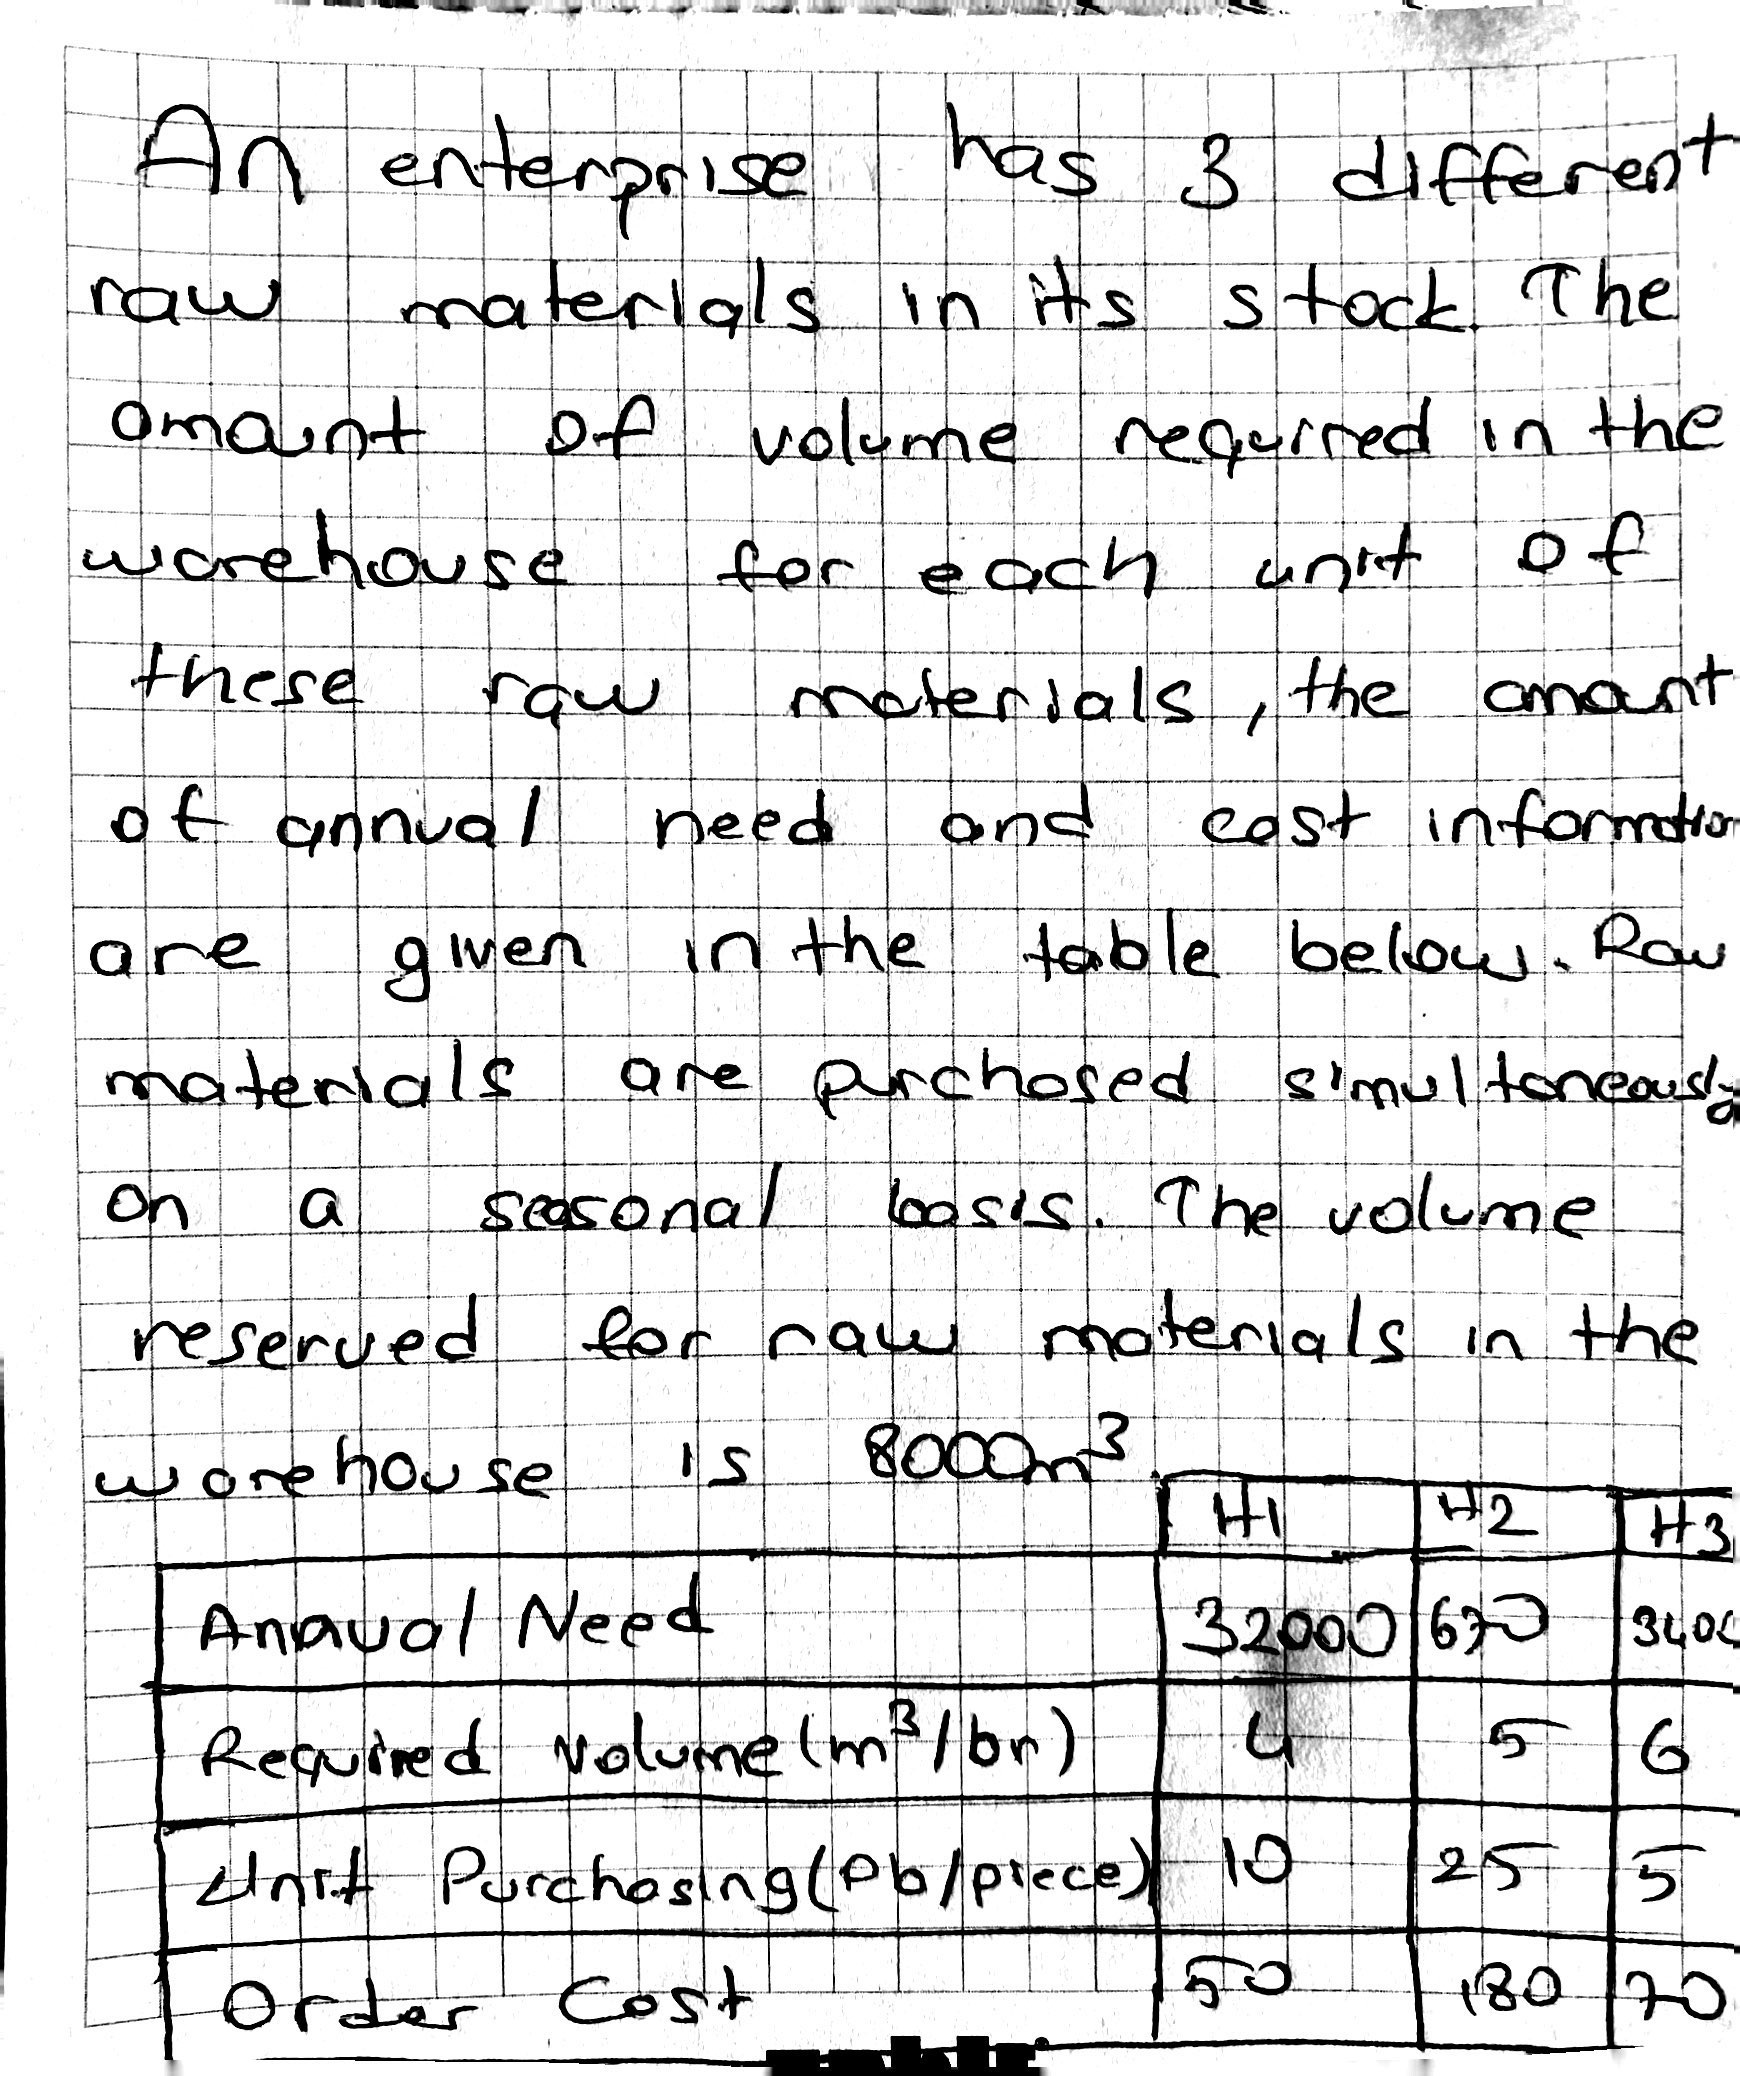 An enterprise has 3 different
raw materials in its stock. The
amount of volume required in the
warehouse for each unit of
these raw materials, the amount
of annual need and cost information
are given in the table below. Raw
materials are purchased simultaneously
on a seasonal basis. The volume
reserved for raw materials in the
warehouse is 8000m³.
H1 H2 H3
Annual Need 32000 670
Required Volume (m³/br) 4 5 6
Unit Purchasing (Pb/piece) 10 25 5
Order Cost 50 180 70